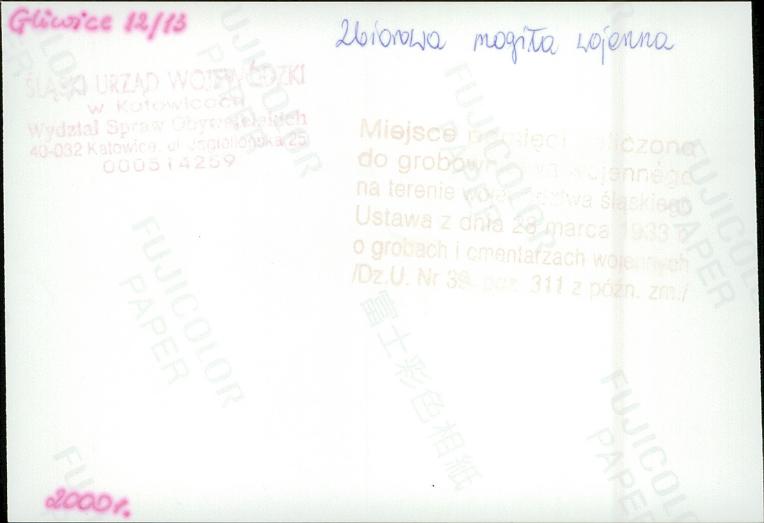 Gliwice 12/13
Zbiorowa mogiła wojenna
ŚLĄSKI URZĄD WOJEWÓDZKI
w Katowicach
Wydział Spraw Obywatelskich
40-032 Katowice, ul. Jagiellońska 25
000514259
Miejsce pamięci zaliczone
do grobownictwa wojennego
na terenie województwa śląskiego
Ustawa z dnia 28 marca 1933 r.
o grobach i cmentarzach wojennych
/Dz.U. Nr 39, poz. 311 z późn. zm./
FUJICOLOR
PAPER
FUJICOLOR
PAPER
FUJICOLOR
PAPER
FUJICOLOR
PAPER
富士彩色相紙
FUJICOLOR
PAPER
2000r.